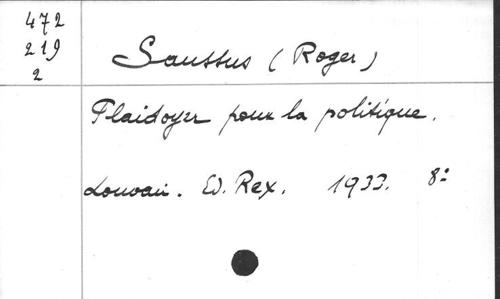 472
219
2
Saussus (Roger)
Plaidoyer pour la politique.
Louvain. Ed. Rex. 1933. 8º